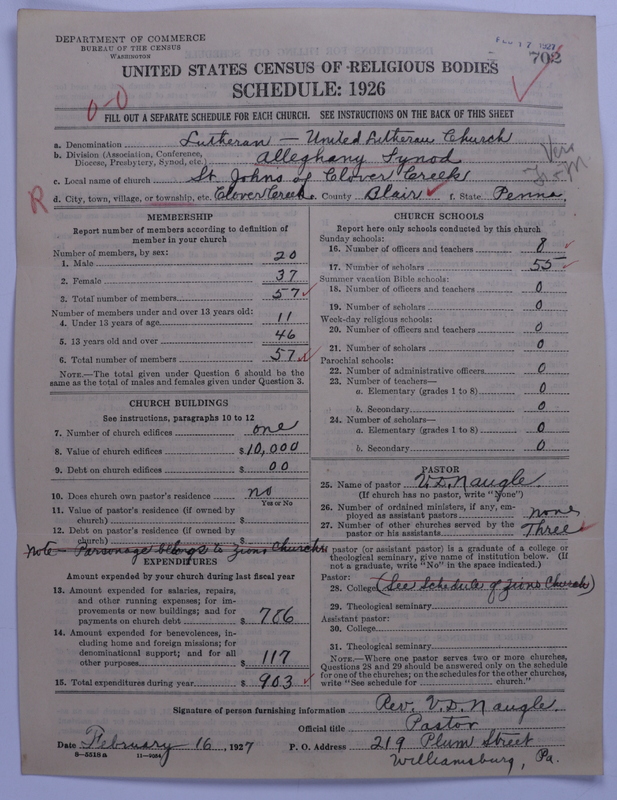 DEPARTMENT OF COMMERCE
BUREAU OF THE CENSUS
WASHINGTON
FEB 17 1927
702
UNITED STATES CENSUS OF RELIGIOUS BODIES
SCHEDULE: 1926
0-0
FILL OUT A SEPARATE SCHEDULE FOR EACH CHURCH. SEE INSTRUCTIONS ON THE BACK OF THIS SHEET
a. Denomination Lutheran – United Lutheran Church
b. Division (Association, Conference, Diocese, Presbytery, Synod, etc.) Alleghany Synod
c. Local name of church St. Johns of Clover Creek
R d. City, town, village, or township, etc. Clover Creek e. County Blair f. State Penna.
MEMBERSHIP
Report number of members according to definition of
member in your church
Number of members, by sex:
1. Male 20
2. Female 37
3. Total number of members 57
Number of members under and over 13 years old:
4. Under 13 years of age 11
5. 13 years old and over 46
6. Total number of members 57
NOTE.—The total given under Question 6 should be
same as the total of males and females given under Question 3.
CHURCH BUILDINGS
See instructions, paragraphs 10 to 12
7. Number of church edifices one
8. Value of church edifices $10,000
9. Debt on church edifices $ 00
10. Does church own pastor's residence no
Yes or No
11. Value of pastor's residence (if owned by
church) $
12. Debt on pastor's residence (if owned by
church) $
Note – Parsonage belongs to Zions Church
EXPENDITURES
Amount expended by your church during last fiscal year
13. Amount expended for salaries, repairs,
and other running expenses; for im-
provements or new buildings; and for
payments on church debt $ 786
14. Amount expended for benevolences, in-
cluding home and foreign missions; for
denominational support; and for all
other purposes $ 117
15. Total expenditures during year $ 903
CHURCH SCHOOLS
Report here only schools conducted by this church
Sunday schools:
16. Number of officers and teachers 8
17. Number of scholars 55
Summer vacation Bible schools:
18. Number of officers and teachers 0
19. Number of scholars 0
Week-day religious schools:
20. Number of officers and teachers 0
21. Number of scholars 0
Parochial schools:
22. Number of administrative officers 0
23. Number of teachers—
a. Elementary (grades 1 to 8) 0
b. Secondary 0
24. Number of scholars—
a. Elementary (grades 1 to 8) 0
b. Secondary 0
PASTOR
25. Name of pastor V. D. Naugle
(If church has no pastor, write "None")
26. Number of ordained ministers, if any, em-
ployed as assistant pastors none
27. Number of other churches served by the
pastor or his assistants Three
If pastor (or assistant pastor) is a graduate of a college or
theological seminary, give name of institution below. (If
not a graduate, write "No" in the space indicated.)
Pastor:
28. College (See Schedule of Zions Church)
29. Theological seminary
Assistant pastor:
30. College
31. Theological seminary
NOTE.—Where one pastor serves two or more churches,
Questions 28 and 29 should be answered only on the schedule
for one of the churches; on the schedules for the other churches,
write "See schedule for church."
Signature of person furnishing information Rev. V. D. Naugle
Official title Pastor
Date February 16, 1927 P. O. Address 219 Plum Street
Williamsburg, Pa.
8—5518a